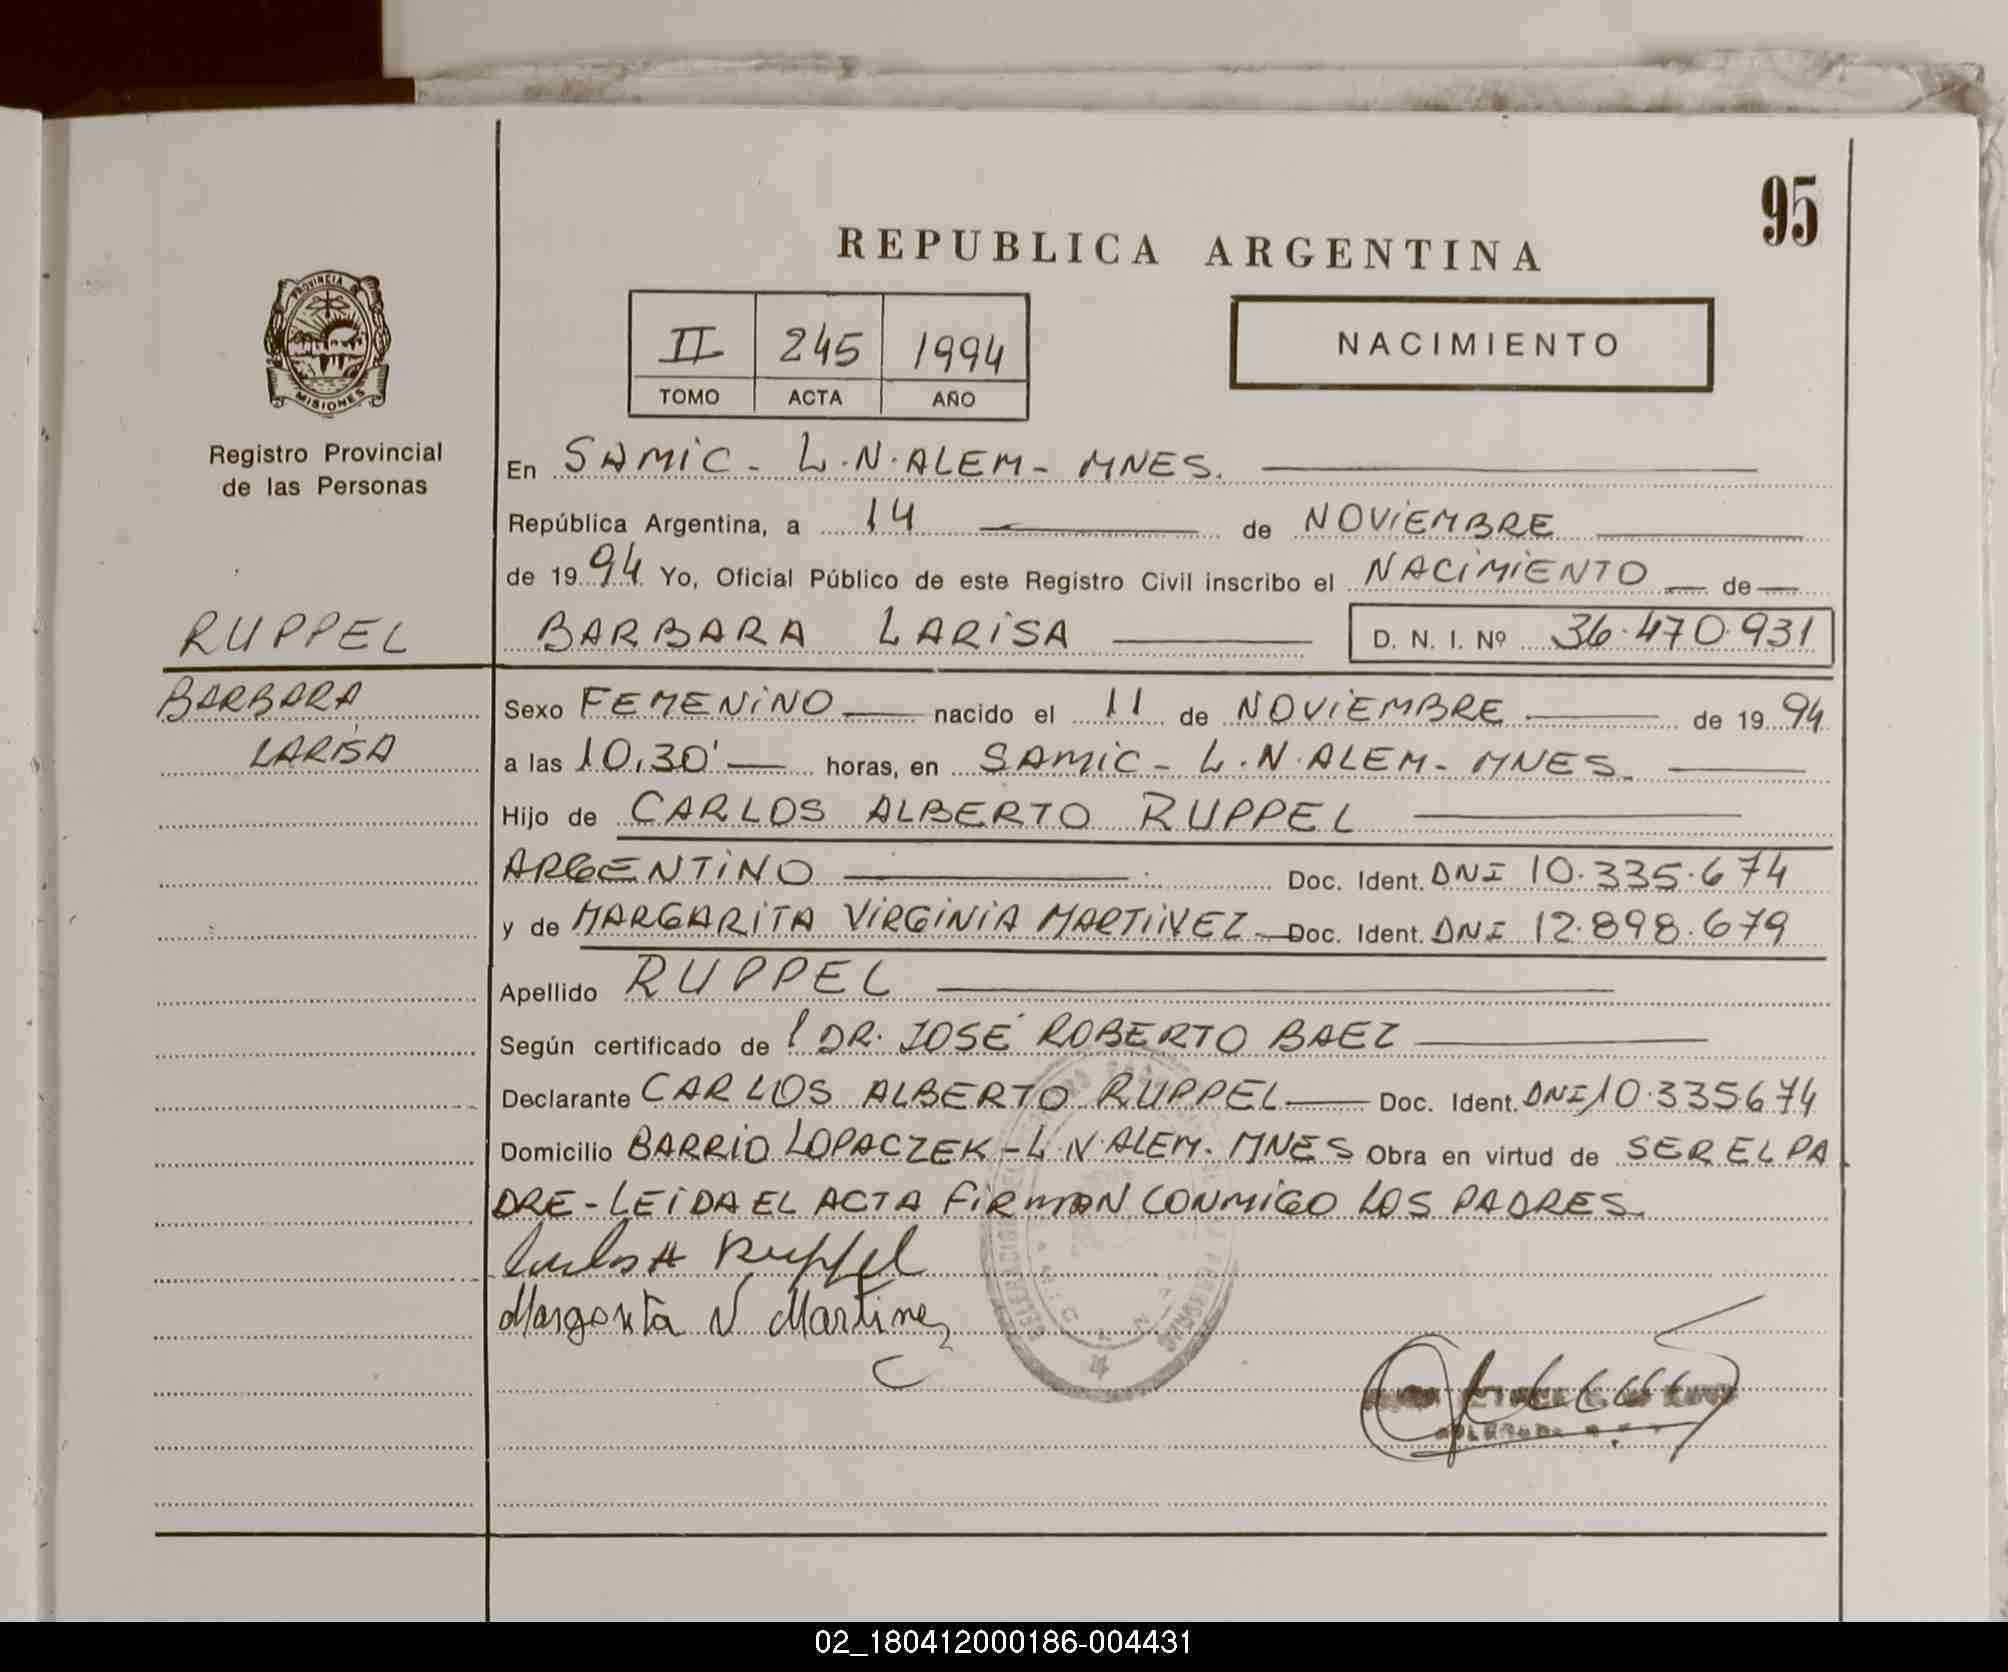 95
REPUBLICA ARGENTINA
PROVINCIA DE
MISIONES
Registro Provincial
de las Personas
II 245 1994
TOMO ACTA AÑO
NACIMIENTO
En SAMIC - L.N. ALEM - MNES.
República Argentina, a 14 de NOVIEMBRE
de 1994 Yo, Oficial Público de este Registro Civil inscribo el NACIMIENTO de
RUPPEL
BARBARA LARISA D. N. I. Nº 36.470.931
BARBARA
LARISA
Sexo FEMENINO nacido el 11 de NOVIEMBRE de 1994
a las 10,30' horas, en SAMIC - L.N. ALEM - MNES.
Hijo de CARLOS ALBERTO RUPPEL
ARGENTINO Doc. Ident. DNI 10.335.674
y de MARGARITA VIRGINIA MARTINEZ Doc. Ident. DNI 12.898.679
Apellido RUPPEL
Según certificado de DR. JOSÉ ROBERTO BAEZ
Declarante CARLOS ALBERTO RUPPEL Doc. Ident. DNI 10.335674
Domicilio BARRIO LOPACZEK - L.N. ALEM. MNES Obra en virtud de SER EL PA
DRE - LEIDA EL ACTA FIRMAN CONMIGO LOS PADRES.
Carlos A Ruppel
Margarita V Martinez
02_180412000186-004431